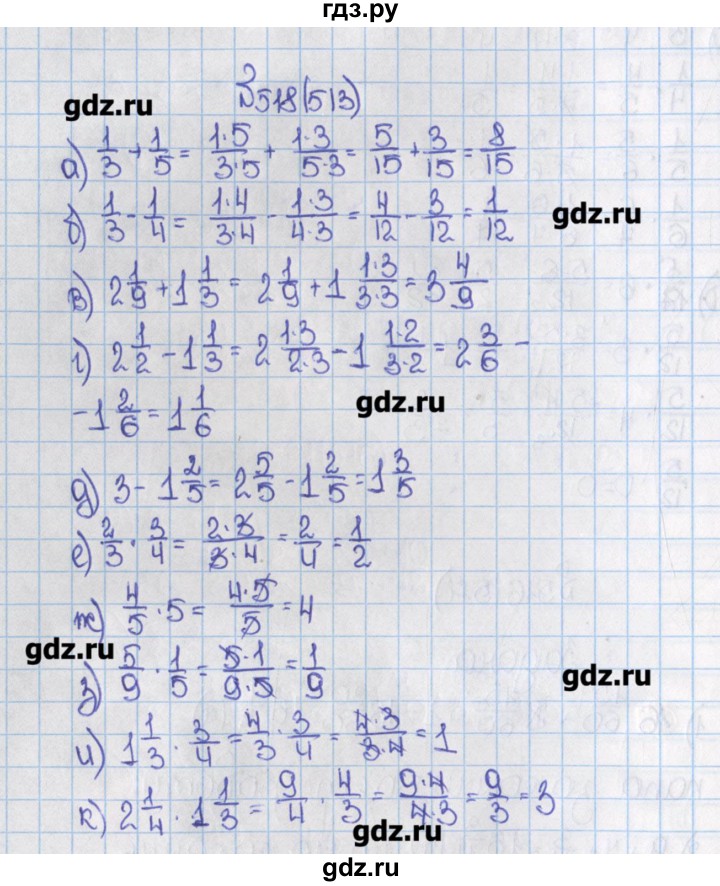 гдз.ру
№518(513)
gdz.ru
а) 1/3 + 1/5 = 1·5/3·5 + 1·3/5·3 = 5/15 + 3/15 = 8/15
б) 1/3 - 1/4 = 1·4/3·4 - 1·3/4·3 = 4/12 - 3/12 = 1/12
gdz.ru
в) 2 1/9 + 1 1/3 = 2 1/9 + 1 1·3/3·3 = 3 4/9
г) 2 1/2 - 1 1/3 = 2 1·3/2·3 - 1 1·2/3·2 = 2 3/6 -
- 1 2/6 = 1 1/6
gdz.ru
д) 3 - 1 2/5 = 2 5/5 - 1 2/5 = 1 3/5
е) 2/3 · 3/4 = 2·3/3·4 = 2/4 = 1/2
ж) 4/5 · 5 = 4·5/5 = 4
gdz.ru
з) 5/9 · 1/5 = 5·1/9·5 = 1/9
gdz.ru
и) 1 1/3 · 3/4 = 4/3 · 3/4 = 4·3/3·4 = 1
к) 2 1/4 · 1 1/3 = 9/4 · 4/3 = 9·4/4·3 = 9/3 = 3
gdz.ru
gdz.ru